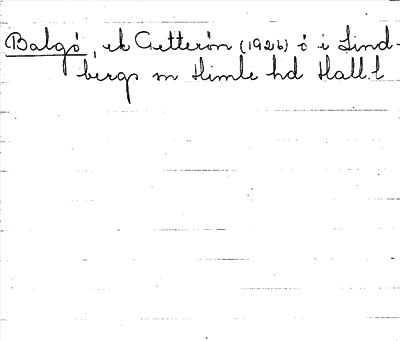 Balgö, ek Getterön (1926) ö i Lind-
bergs sn Himle hd Hall. l